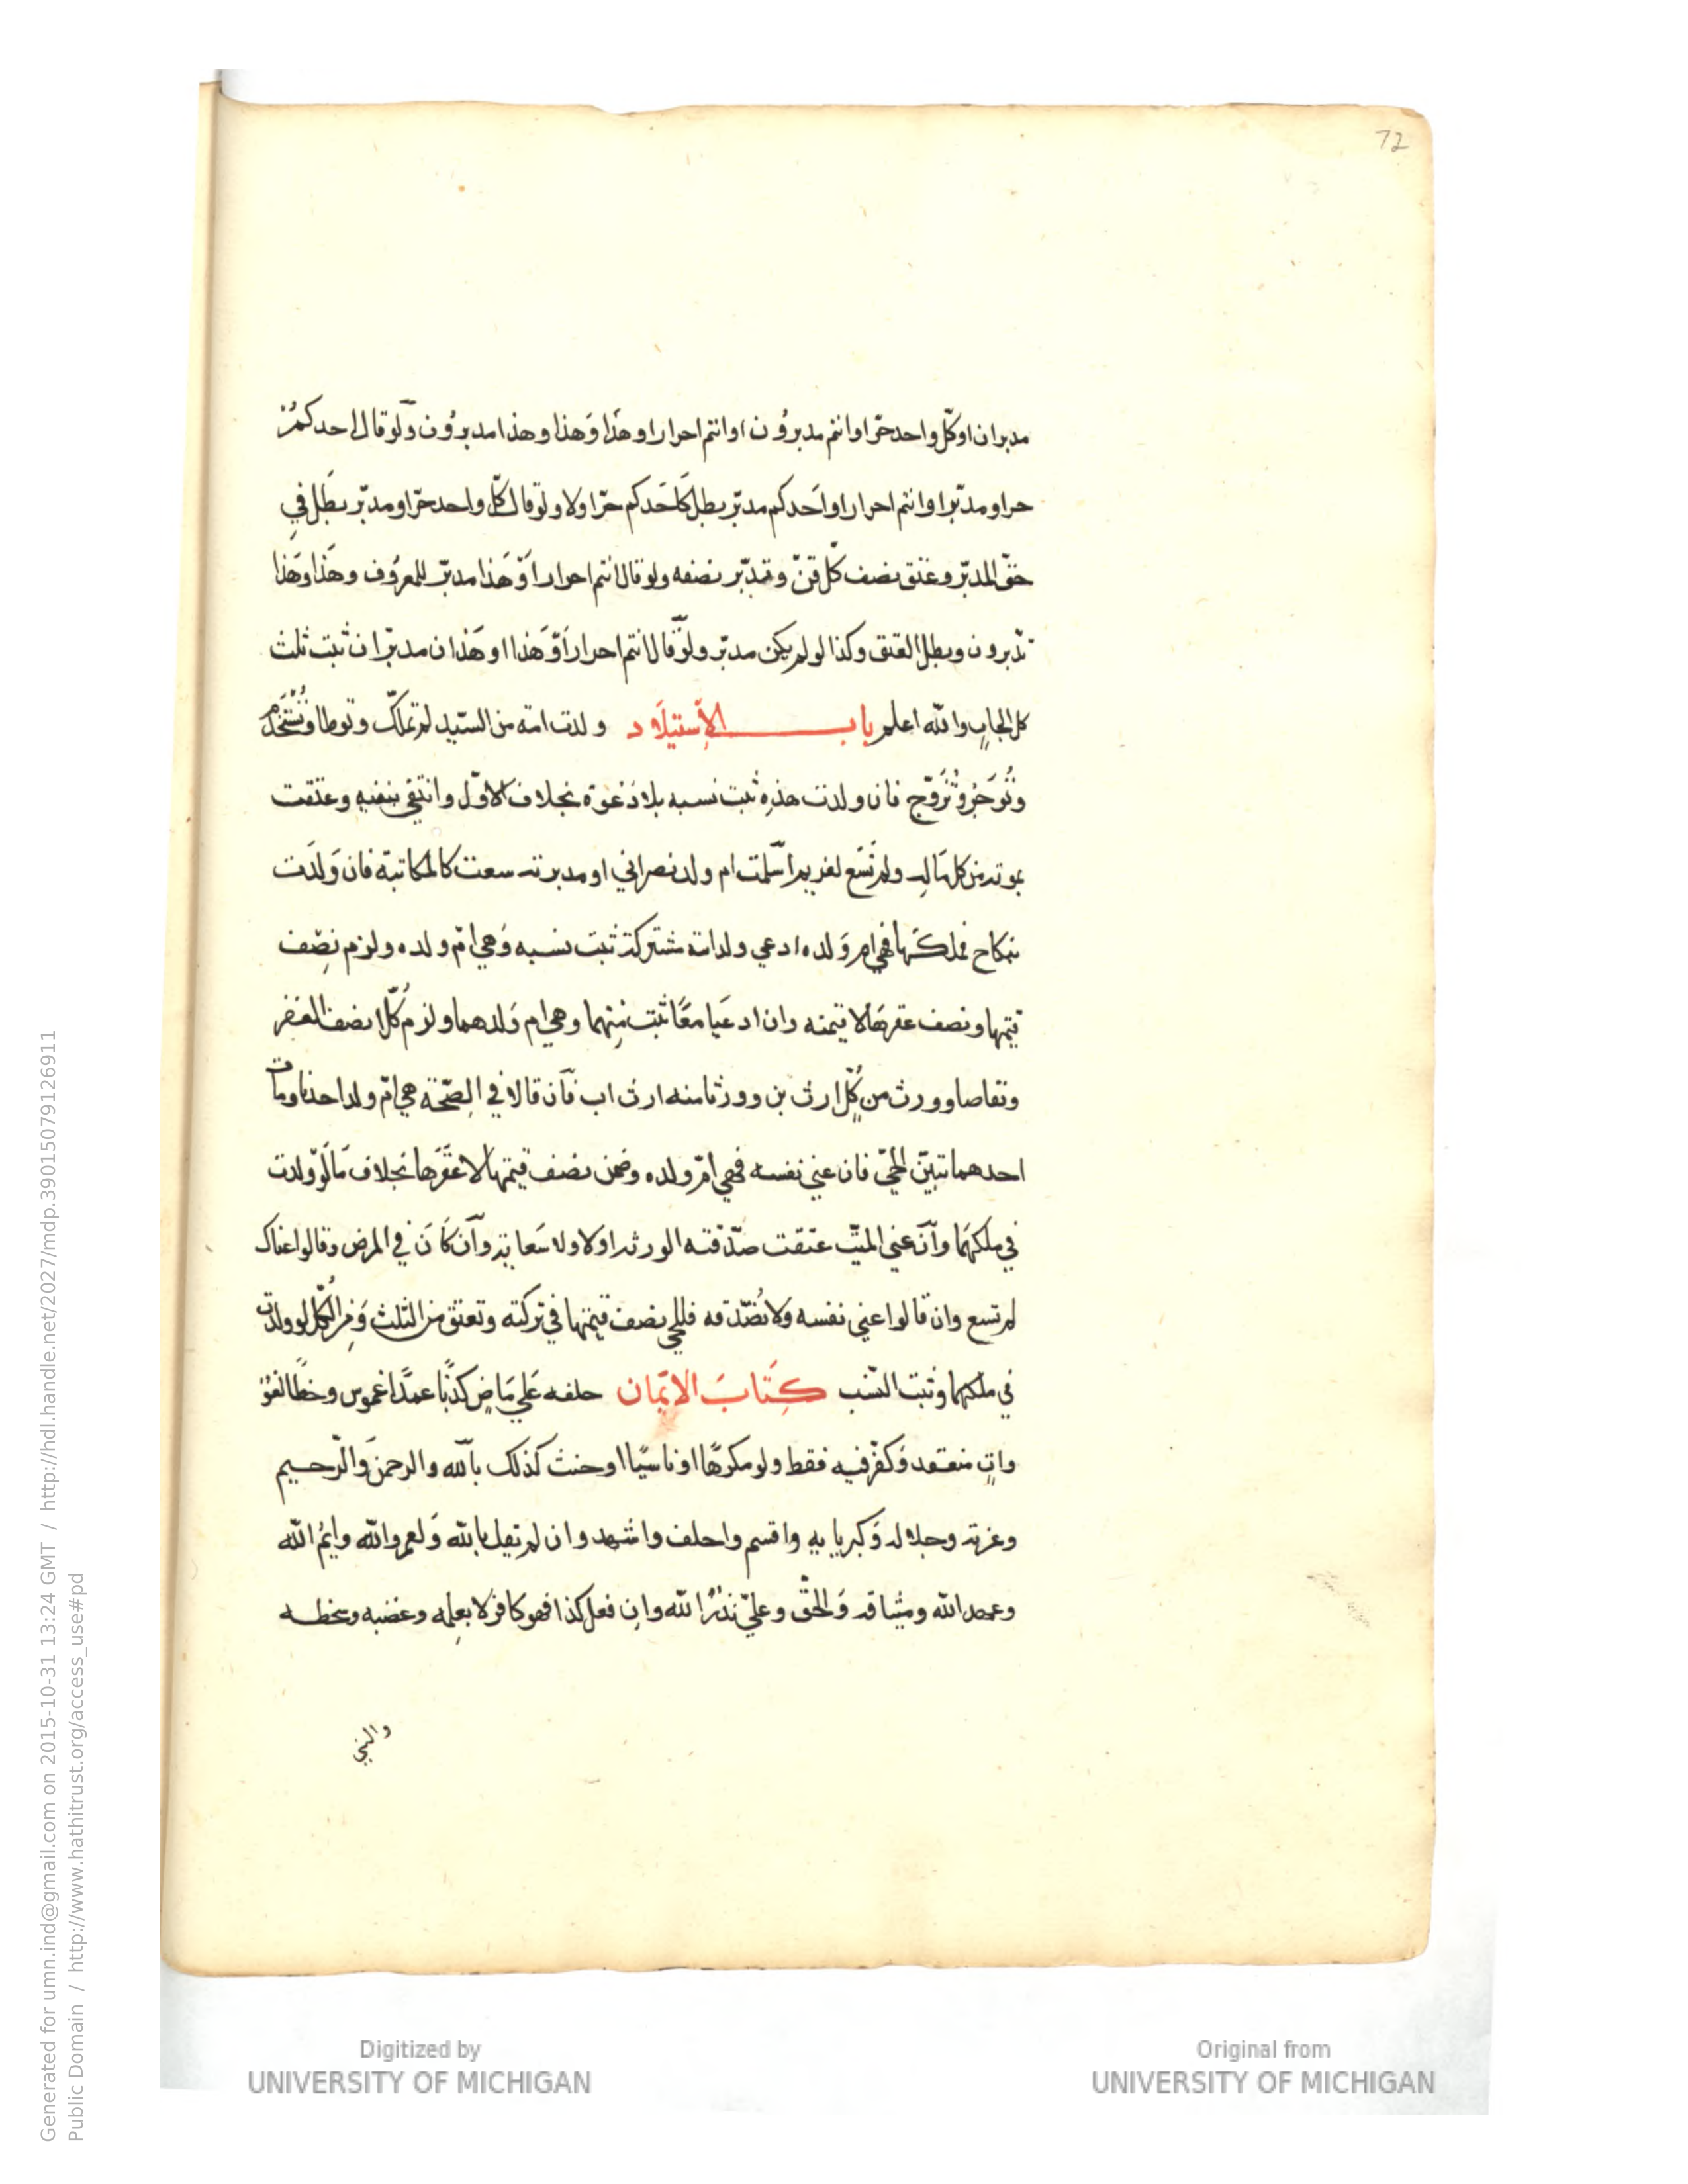 72
مدبران اوكلّ واحد حرّ اوانتم مدبروُن اوانتم احرار اوهذا وَهذا وهذا مدبروُن وَلوقال احدكم
حراومدبّر اوانتم احرار اواحَدكم مدبّر بطل كَاحَدكم حرّ اولا ولوقال كلّ واحد حرّ اومدبّر بطَل في
حقّ المدبّر وعتق نصف كلّ قنّ وتدبّر نصفه ولوقال انتم احرار اَوْ هَذا مدبّر للمعرُوف وهَذا وهَذا
تدّبرون وبطل العتق وكذا لولم يكن مدبّر ولَوْقال انتم احرار اَوْ هَذا اوهَذان مدبّران ثبت ثلث
كل ايجابٍ والله اعلم باب الاِستيلاَد ولدت امته من السّيد لم تملّك وتوطا وتُستَخدَم
وتُوجَر وتُزَوّج فان ولدت هذِه ثبت نسبه بلا دَعوَة بخلاف الاوّل وانتفى بنفيهِ وعتقت
بموته من كل مَاله ولم تَسَع لغريم اسْلمت ام ولد نصراني او مدبرته سعت كالمكاتبة فان وَلدَت
بنكاح فملكَها فهي ام وَلده ادعي ولد امة مشتركة ثبت نسبه وَهي امّ ولده ولزم نصْف
قيمتها ونصف عقرهَا لا قيمته وان ادعَيا معًا ثبت منِهما وهي ام وَلدهما ولزم كُلّا نصف العَقر
وتقاصا وورث من كلٍّ ارث بن وورثا منه ارث اب فاَن قالا في الصّحّة هي امّ ولد احدنا ومات
احدهما تبيّن الحيّ فان عني نفسه فهي امّ ولده وضمن نصف قيمتها لا عقرَها بخلاف مَا لَوْ ولدت
في ملكهَما وآن عني الميّت عتقت صدّقته الورثه اوَلا ولا سَعاية وآن كَانَ في المرض وقالوا عناك
لم تسع وان قالوا عني نفسه ولا نُصّدقه فللحي نصف قيمتها في تركته وتعتق من الثّلث وَمن الكُلّ لوولدت
في ملكهما وثبت النّسب كِتَابَ الايمَان حلفه عَلي مَاضٍ كذبًا عمدًا غموس وخطًا لغوْ
واتٍ منعقد وَكفّر فيه فقط ولو مكرهًا او ناسيًا او حنث كذلك بآلله والرحمن وَالرّحيم
وعزته وجلاله وَكبريايه واقسم واحلف واشهد وان لم يقل بالله وَلعمر والله وايمُ الله
وعهد الله وميثاقه وَالحقّ وعليّ نذْرُ الله وان فعل كذا فهو كافر لا بعلِمه وغضبه وسخطه
والنبي
Generated for umn.ind@gmail.com on 2015-10-31 13:24 GMT / http://hdl.handle.net/2027/mdp.39015079126911
Public Domain / http://www.hathitrust.org/access_use#pd
Digitized by
UNIVERSITY OF MICHIGAN
Original from
UNIVERSITY OF MICHIGAN